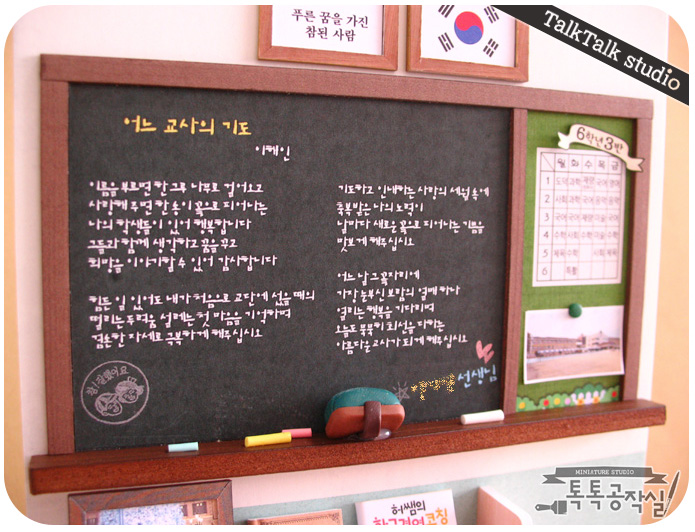 TalkTalk studio
푸른 꿈을 가진
참된 사람
어느 교사의 기도
이해인
이름을 부르면 한 그루 나무로 걸어오고
사랑해 주면 한 송이 꽃으로 피어나는
나의 학생들이 있어 행복합니다
그들과 함께 생각하고 꿈을 꾸고
희망을 이야기할 수 있어 감사합니다
힘든 일 있어도 내가 처음으로 교단에 섰을 때의
떨리는 두려움 설레는 첫 마음을 기억하며
겸손한 자세로 극복하게 해주십시오
기도하고 인내하는 사랑의 세월 속에
축복받은 나의 노력이
날마다 새로운 꽃으로 피어나는 기쁨을
맛보게 해주십시오
어느 날 그 꽃자리에
가장 눈부신 보람의 열매 하나
열리는 행복을 기다리며
오늘도 묵묵히 최선을 다하는
아름다운 교사가 되게 해주십시오
선생님
참! 잘했어요
6학년 3반
월 화 수 목 금
1
2
3
4
5
6
허쌤의
학급경영코칭
MINIATURE STUDIO
톡톡공작실